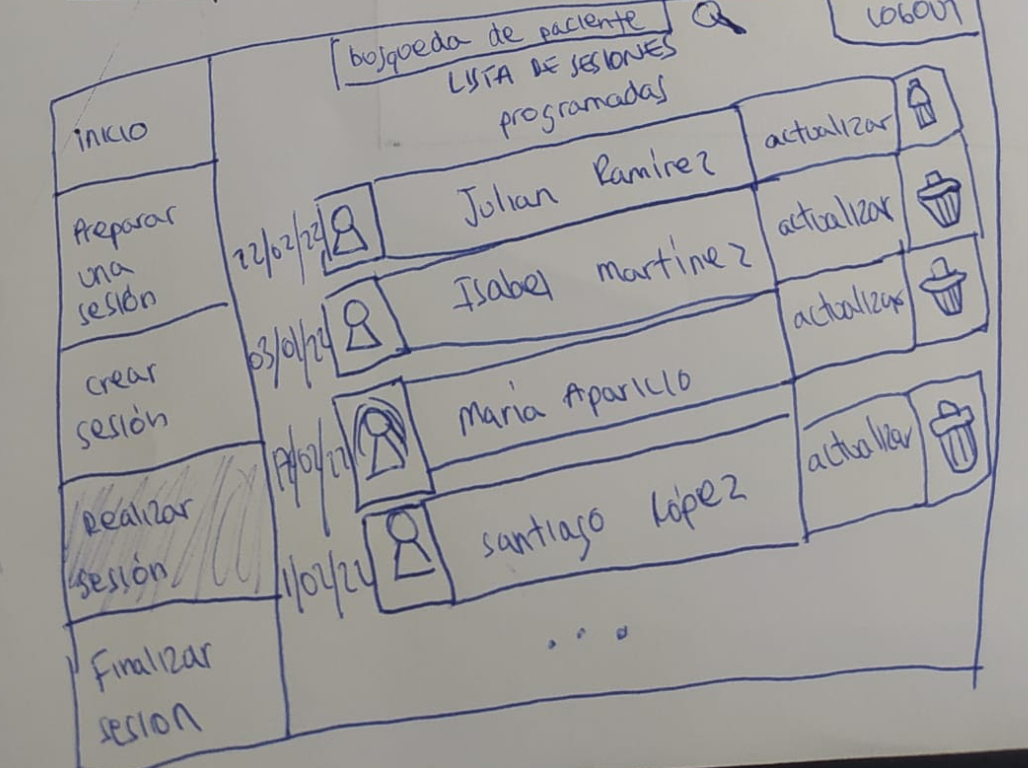 busqueda de paciente
LOGOUT
LISTA DE SESIONES
programadas
inicio
Preparar
una
sesión
crear
sesión
Realizar
sesión
Finalizar
sesion
22/02/22 Julian Ramírez actualizar
03/01/22 Isabel martínez actualizar
María Aparicio actualizar
1/02/22 santiago López actualizar
...